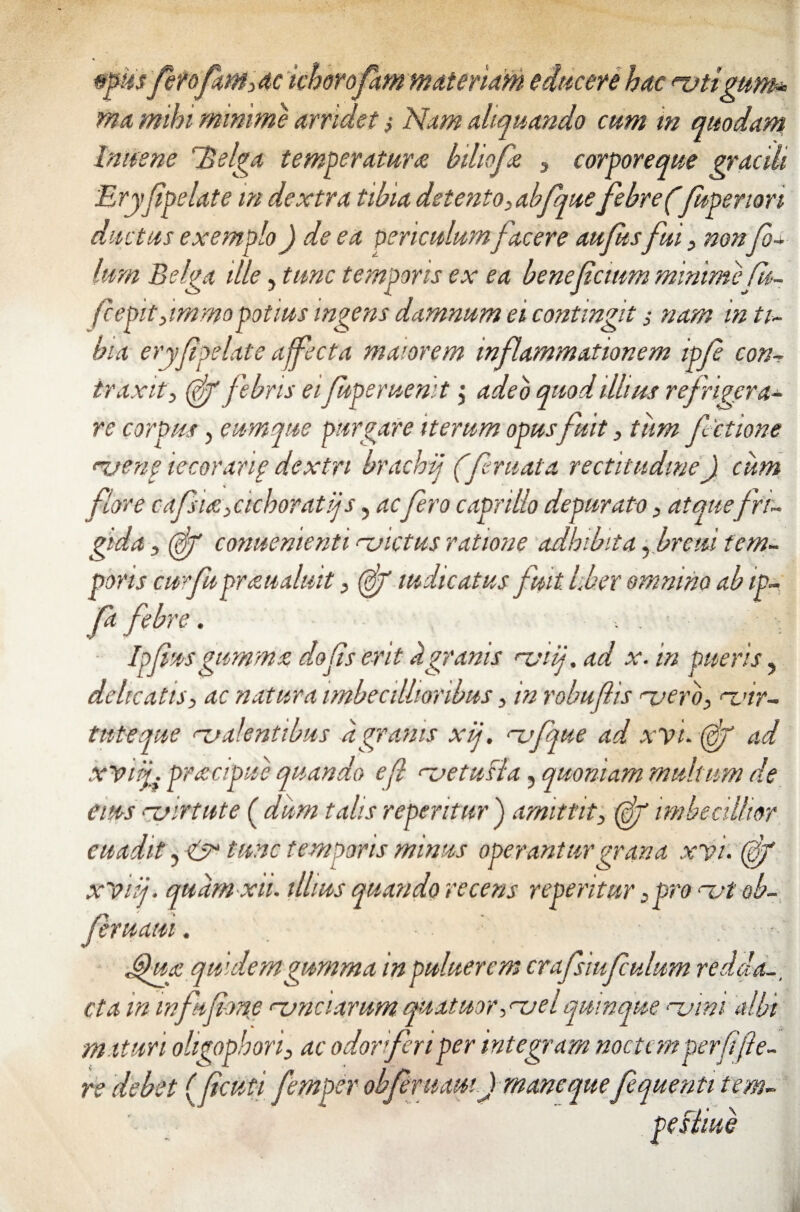 opus ſeroſam, ac ichoroſam materiam educere hac vti gum-
ma mihi minimè arridet; Nam aliquando cum in quodam
Iuuene Belga temperaturæ bilioſæ, corporeque gracili
Eryſipelate in dextra tibia detento, abſque febre (ſuperiori
ductus exemplo) de ea periculum facere auſus fui, non ſo-
lum Belga ille, tunc temporis ex ea beneficium minimè ſu-
ſcepit, immo potius ingens damnum ei contingit; nam in ti-
bia eryſipelate affecta maiorem inflammationem ipſe con-
traxit, & febris ei ſuperuenit; adeò quod illius refrigera-
re corpus, eumque purgare iterum opus fuit, tùm ſectione
venę iecorarię dextri brachij (ſeruata rectitudine) cùm
flore caſsiæ, cichoratijs, ac ſero caprillo depurato, atque fri-
gida, & conuenienti victus ratione adhibita, breui tem-
poris curſu præualuit, & iudicatus fuit liber omnino ab ip-
ſa febre.
Ipſius gummæ doſis erit à granis viij. ad x. in pueris,
delicatis, ac natura imbecillioribus, in robuſtis verò, vir-
tuteque valentibus à granis xij. vſque ad xvi. & ad
xviij. præcipuè quando eſt vetuſta, quoniam multum de
eius virtute (dum talis reperitur) amittit, & imbecillior
euadit, & tunc temporis minus operantur grana xvi. &
xviij. quàm xii. illius quando recens reperitur, pro vt ob-
ſeruaui.
Quæ quidem gumma in puluerem craſsiuſculum redda-
cta in infuſione vnciarum quatuor, vel quinque vini albi
maturi oligophori, ac odoriferi per integram noctem perſiſte-
re debet (ſicuti ſemper obſeruaui) maneque ſequenti tem-
peſtiuè